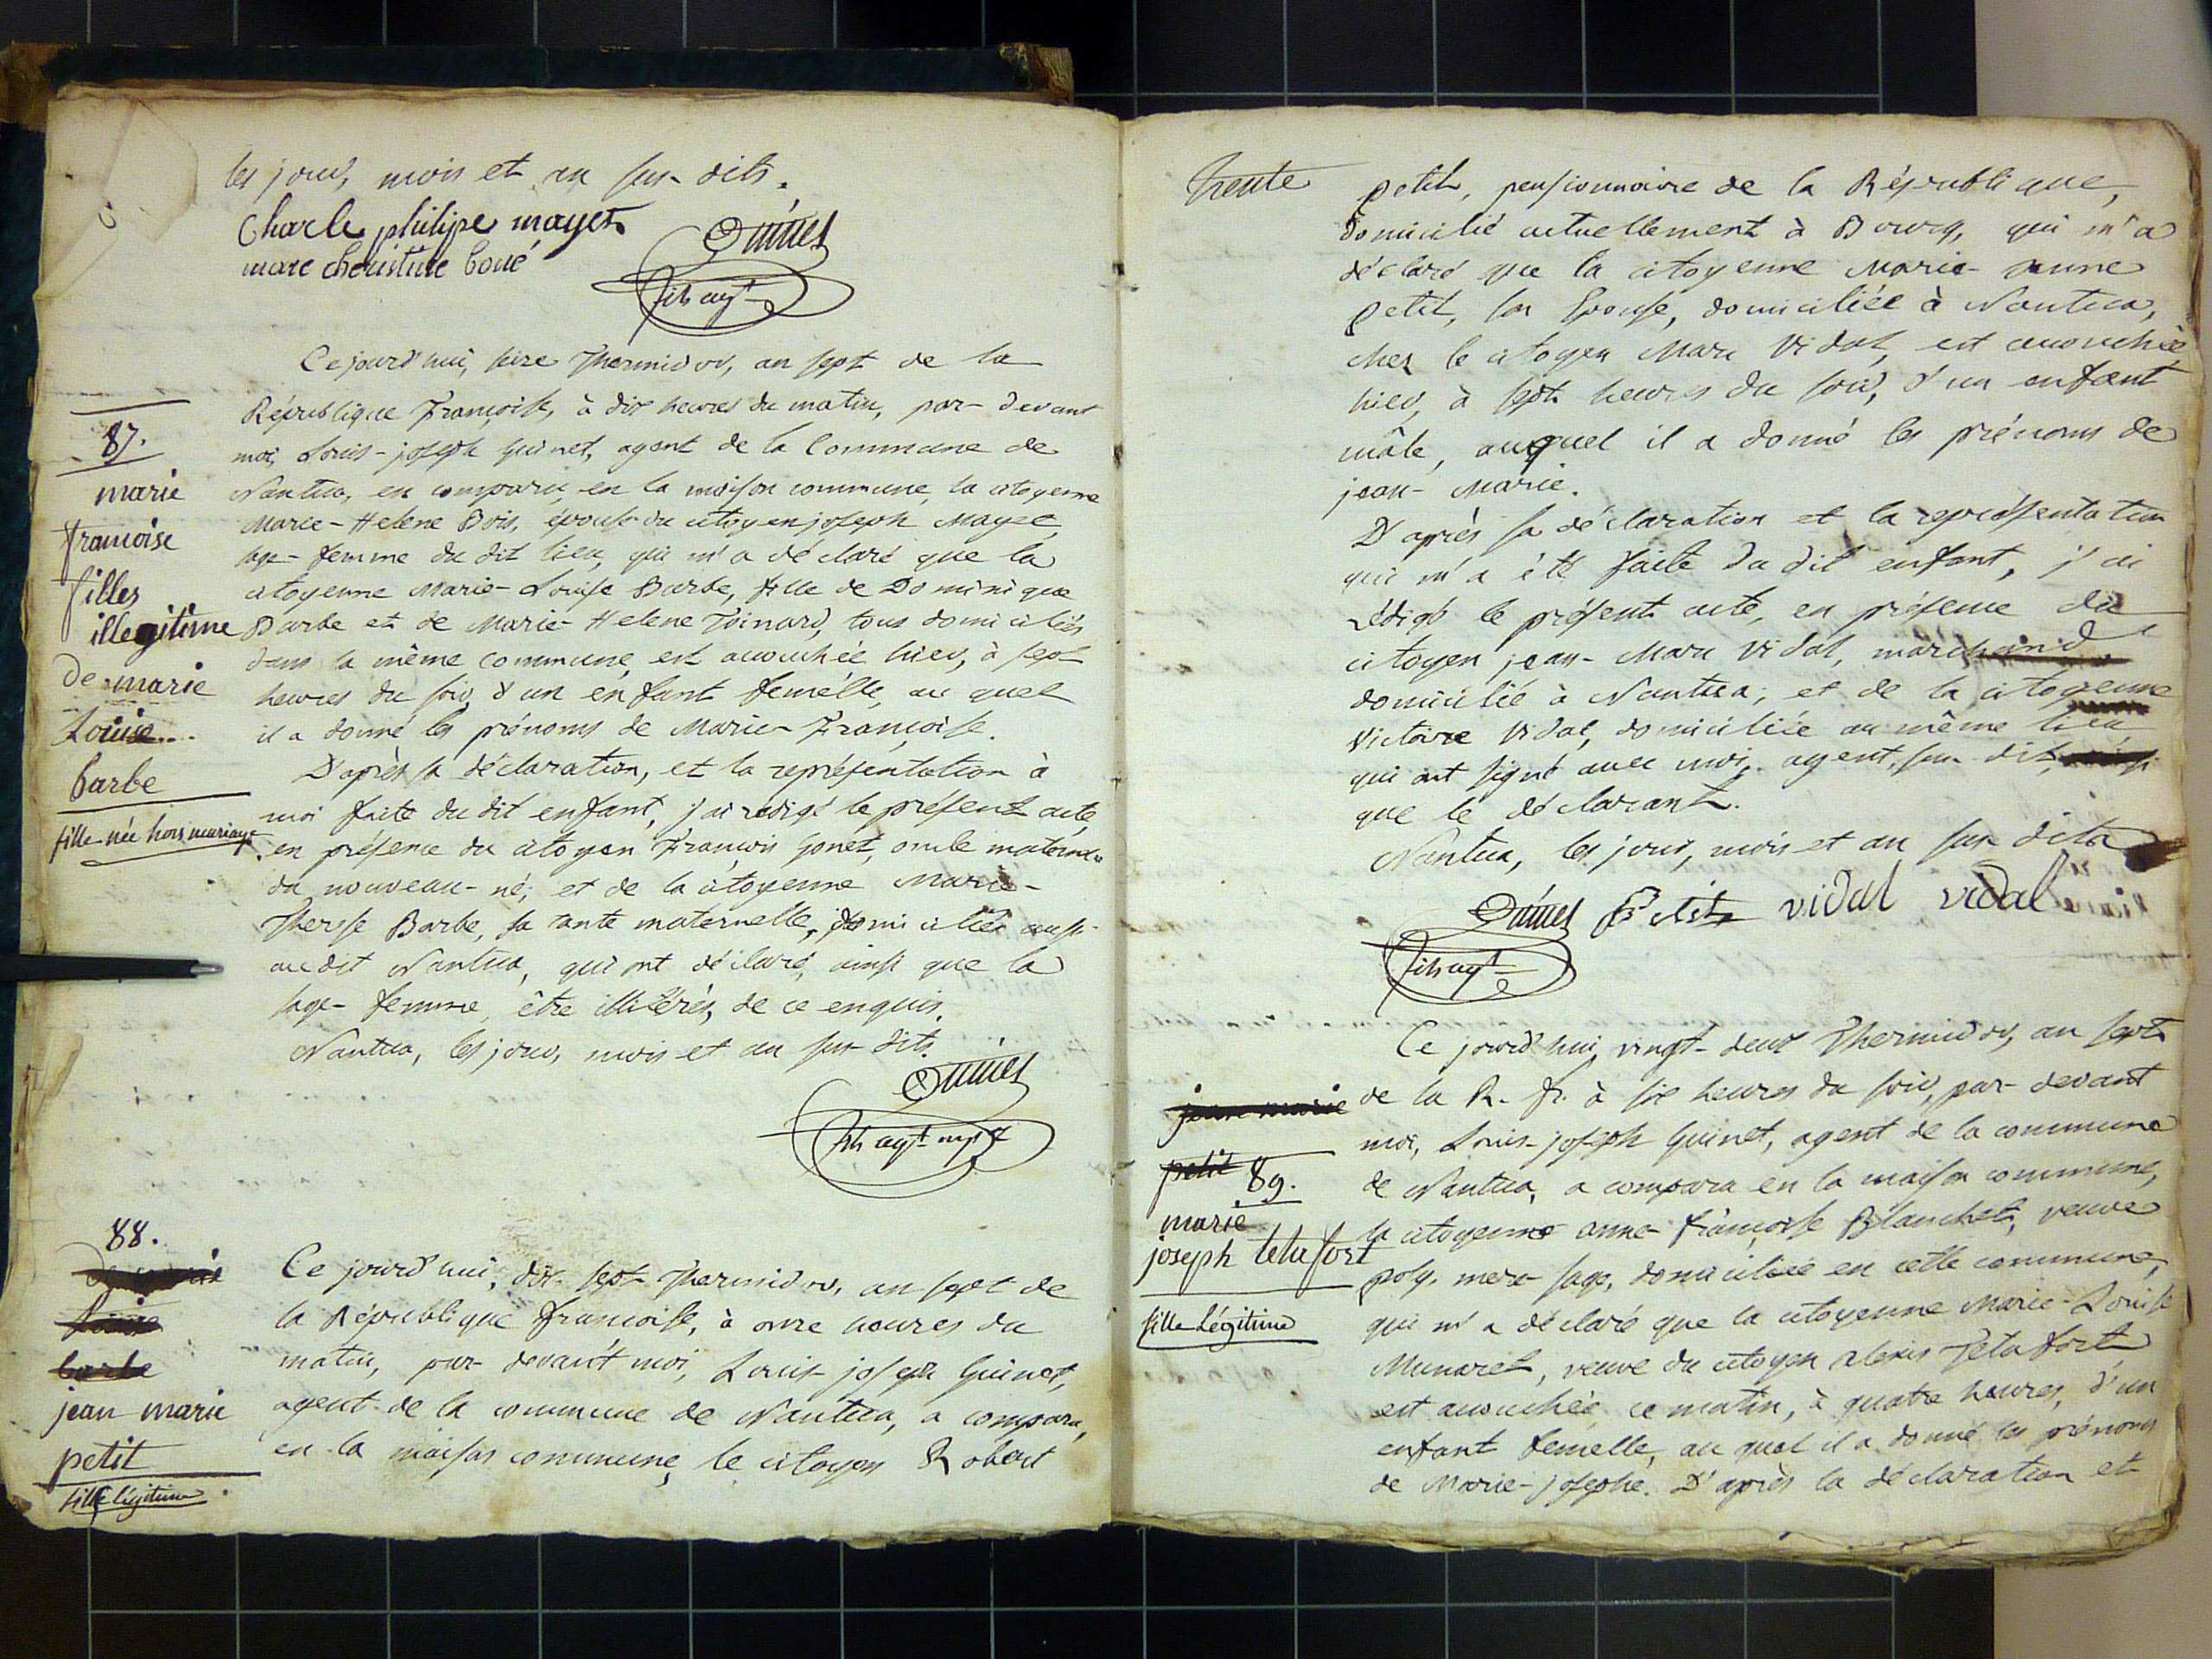 les jour, mois et an sus-dits.
Charle philipe mayet
mare cheristine boué
Guinet
fils agt
Ce jourd'hui, seize Thermidor, an sept de la
République Françoise, à dix heures du matin, par-devant
moi, Louis-joseph Guinet, agent de la Commune de
Nantua, en comparu, en la maison commune, la citoyenne
Marie-Helene Bois, épouse du citoyen joseph Mayet,
sage-femme du dit lieu, qui m'a déclaré que la
citoyenne Marie-Louise Barbe, fille de Dominique
Barbe et de Marie-Helene Toinard, tous domiciliés
dans la même commune, est accouchée hier, à sept
heures du soir, d'un enfant femelle, au quel
il a donné les prénoms de Marie-Françoise.
D'après sa déclaration, et la représentation à
moi faite du dit enfant, j'ai rédigé le présent acte,
en présence du citoyen François Gonet, oncle maternel
du nouveau-né; et de la citoyenne Marie-
Therese Barbe, sa tante maternelle, domiciliés aussi
au dit Nantua, qui ont déclaré, ainsi que la
sage-femme, être illitérés, de ce enquis.
Nantua, les jour, mois et an sus-dits.
Guinet
fils agt
87.
marie
francoise
filles
illegitime
de marie
Louise
barbe
fille née hors mariage.
88.
Louise
barbe
jean marie
petit
fills légitime
Ce jourd'hui, dix-sept Thermidor, an sept de
la République françoise, à onze heures du
matin, par-devant moi, Louis-joseph Guinet,
agent de la commune de Nantua, a comparu,
en la maison commune, le citoyen Robert
trente
petit, pensionnaire de la République,
domicilié actuellement à Bourg, qui m'a
déclaré que la citoyenne Marie-Anne
petit, son Epouse, domiciliée à Nantua,
chez le citoyen Marc Vidal, est accouchée
hier, à sept heures du soir, d'un enfant
mâle, auquel il a donné les prénoms de
jean-Marie.
D'après sa déclaration et la représentation
qui m'a été faite du dit enfant, j'ai
rédigé le présent acte, en présence du
citoyen jean-Marc Vidal, marchand
domicilié à Nantua, et de la citoyenne
Victoire Vidal, domiciliée au même lieu
qui ont signé avec moi, agent sus-dit, ainsi
que le déclarant.
Nantua, les jour, mois et an sus-dits
Guinet Petit vidal vidal
fils agt
jean marie
petit
89.
marie
joseph tetafort
fille Légitime
Ce jourd'hui, vingt-deux Thermidor, an sept
de la R. fr. à six heures du soir, par-devant
moi, Louis-joseph Guinet, agent de la commune
de Nantua, a comparu en la maison commune,
la citoyenne anne-françoise Blanchet, veuve
poly, mere-sage, domiciliée en cette commune,
qui m'a déclaré que la citoyenne Marie-Louise
Munaret, veuve du citoyen Alexis Tetafort,
est accouchée ce matin, à quatre heures, d'un
enfant femelle, au quel il a donné les prénoms
de Marie-josephe. D'après la déclaration et